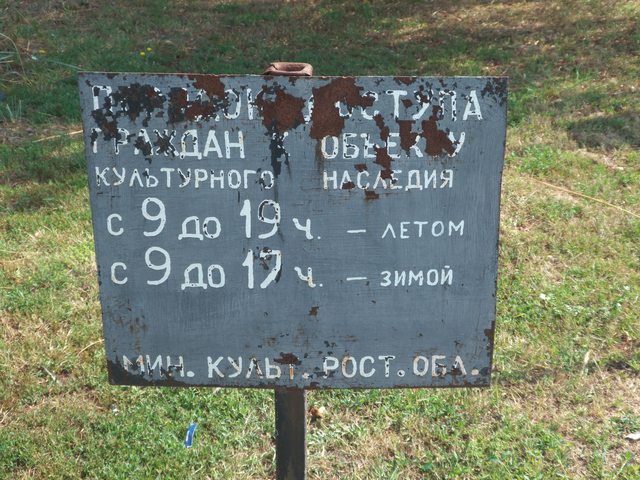 ПОРЯДОК ДОСТУПА
ГРАЖДАН К ОБЪЕКТУ
КУЛЬТУРНОГО НАСЛЕДИЯ
с 9 до 19 ч. – ЛЕТОМ
с 9 до 17 ч. – ЗИМОЙ
МИН. КУЛЬТ. РОСТ. ОБЛ.